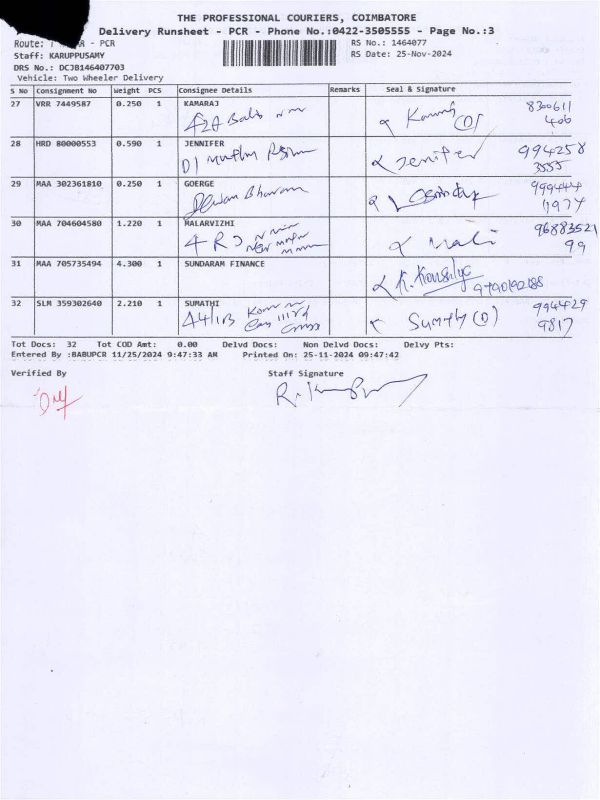 THE PROFESSIONAL COURIERS, COIMBATORE
Delivery Runsheet - PCR - Phone No.:0422-3505555 - Page No.:3
Route: - PCR RS No.: 1464077
Staff: KARUPPUSAMY RS Date: 25-Nov-2024
DRS No.: DCJB146407703
Vehicle: Two Wheeler Delivery
S No Consignment No Weight PCS Consignee Details Remarks Seal & Signature
27 VRR 7449587 0.250 1 KAMARAJ 8300611
406
28 HRD 80000553 0.590 1 JENNIFER Jenifer 994258
3555
29 MAA 302361810 0.250 1 GOERGE
30 MAA 704604580 1.220 1 MALARVIZHI Mali 96883521
99
31 MAA 705735494 4.300 1 SUNDARAM FINANCE
32 SLM 359302640 2.210 1 SUMATHI 994429
9817
Tot Docs: 32 Tot COD Amt: 0.00 Delvd Docs: Non Delvd Docs: Delvy Pts:
Entered By :BABUPCR 11/25/2024 9:47:33 AM Printed On: 25-11-2024 09:47:42
Verified By Staff Signature